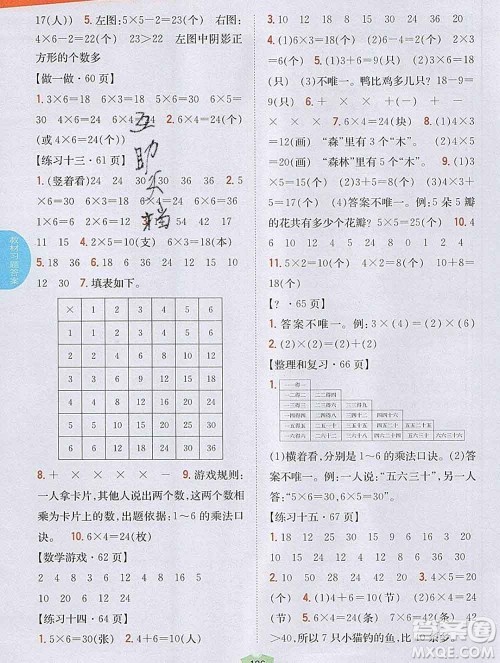 17(人)) 5.左图:5×5=25(个) 右图:
4×6-2=22(个) 23>22 左图中阴影正
方形的个数多
【做一做·60页】
1.3×6=18 6×3=18 5×6=30 6×5=
30 4×6=24 6×4=24 2.6×4=24(个)
(或4×6=24(个))
【练习十三·61页】
1.(竖着看)24 24 30 30 36
2.5×6=30 3×6=18 2×6=12 6×6=36
1×6=6 6×4=24 3.18 24 30 36
11 15 4.2×5=10(支) 6×3=18(本)
5.18 36 6 15 24 16 6.18 24 6
12 30 7.填表如下。
× 1 2 3 4 5 6
1 1 2 3 4 5 6
2 2 4 6 8 10 12
3 3 6 9 12 15 18
4 4 8 12 16 20 24
5 5 10 15 20 25 30
6 6 12 18 24 30 36
8.+ × × × × - 9.游戏规则:
一人拿卡片,其他人说出两个数,这两个数
相乘为卡片上的数,出题依据:1~6的乘法
口诀。 10.6×4=24(枚)
【数学游戏·62页】
2 4 8 9 12 16 15 20 24
30
【练习十四·64页】
1.5×6=30(张) 2.+ × + × ×
3.10 12 18 24 30 36
4.(1)3×6=18(个) (2)3+6=9(个)
5.(1)3×6=18(只) (2)3+6=9
(只) (3)不唯一。鸭比鸡多几只?18-9=
9(只) 6.+ × × + × × 7.4×
3=12(画) “森”里有3个“木”。 4×5
=20(画) “森林”里有5个“木”。 8.6×
6=36(个) 9.答案不唯一。例:5朵5瓣
的花共有多少个花瓣? 5×5=25(个)
10.(1)3×4=12(个) (2)3×5=15
(个) (3)2×6=12(个)
11.3×2=6(个) 3×6=18(个)
【?·65页】
1.答案不唯一。例:3×(4) (2)×(6)
2.(1)+(2) (1)×(2)
【整理和复习·66页】
一一得一
一二得二 二二得四
一三得三 二三得六 三三得九
一四得四 二四得八 三四十二 四四十六
一五得五 二五一十 三五十五 四五二十 五五二十五
一六得六 二六十二 三六十八 四六二十四 五六三十 六六三十六
(1)横着看,分别是1~6的乘法口诀。(2)
答案不唯一。例:一人说:“五六三十”,另一
人答:“5×6=30”。
【练习十五·67页】
1.10 25 24 12 18 30 2.3 18
12 20 30 24 3.6×4=24(个)
4.(1)5×6=30(个) (2)4×6=24(个)
5.(1)7 (2)6×7=42(条) 7×6=42
>40。所以7只小猫钓的鱼比
教材习题答案
互助
MXQE.COM